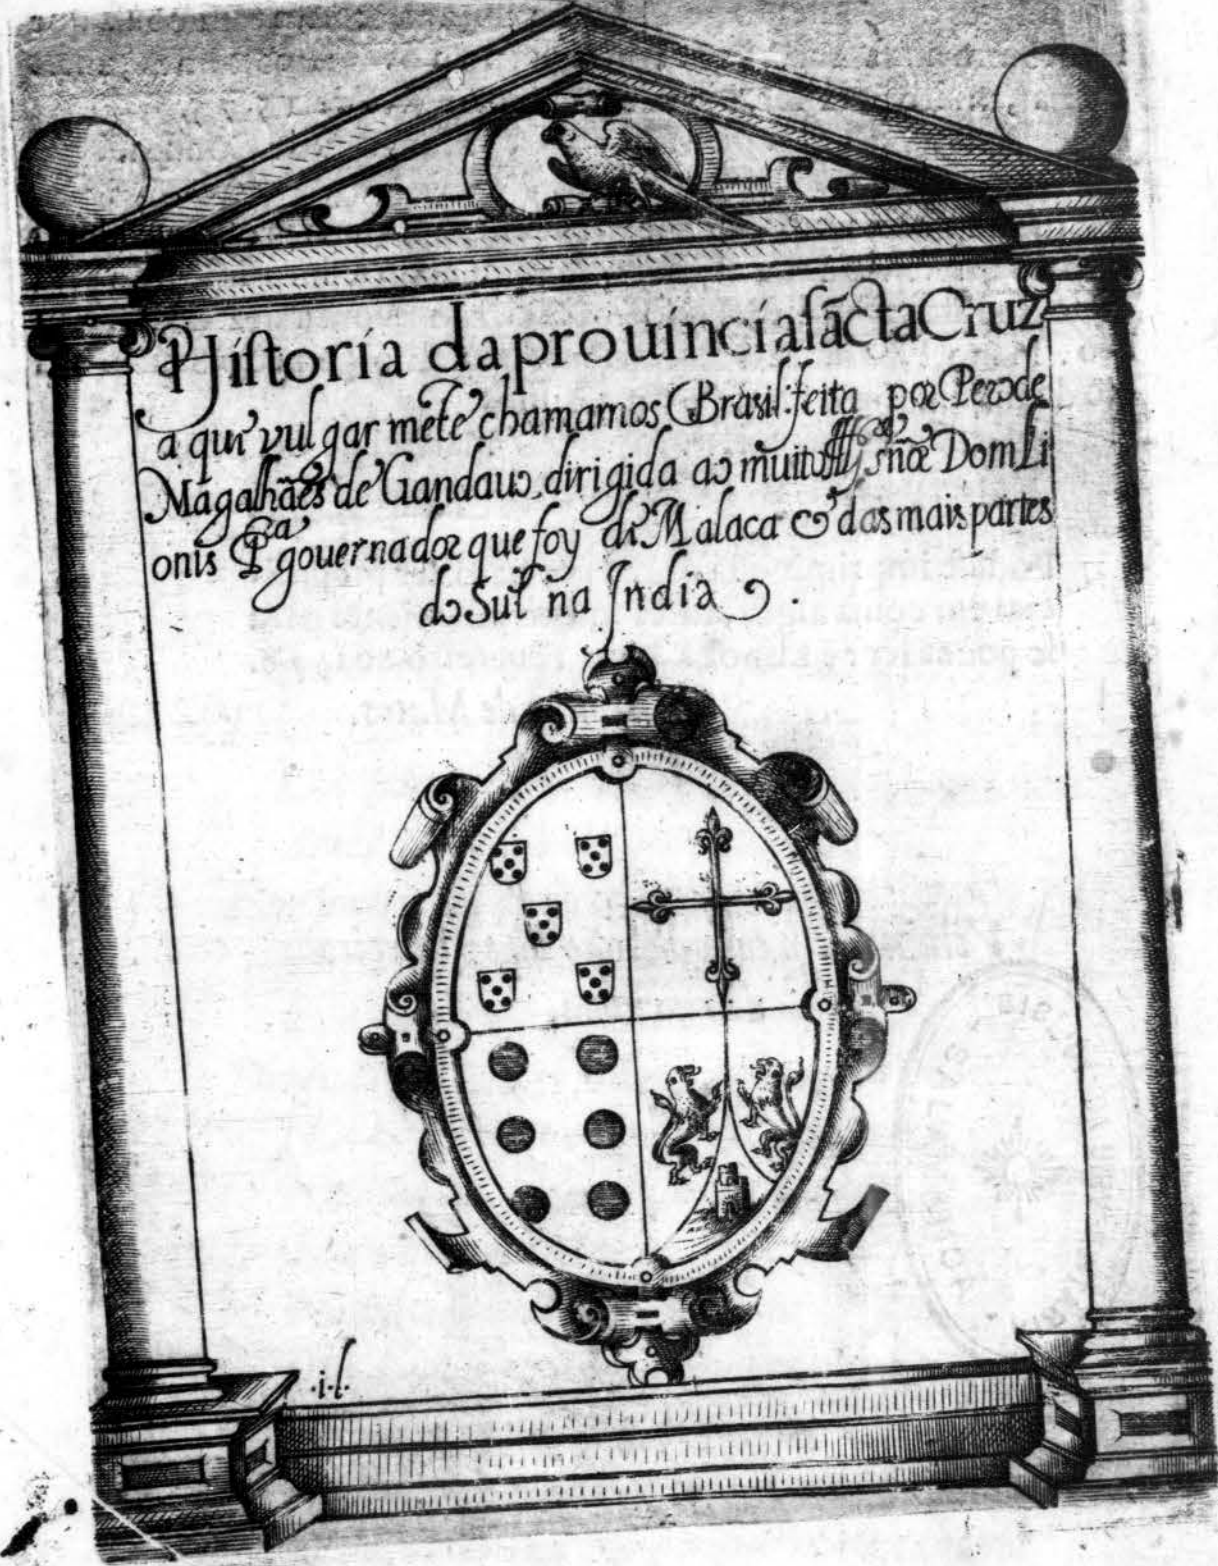 Hiſtoria da prouincia ſãcta Cruz
a qui vulgar mẽte chamamos Brasil: feita por Pero de
Magalhães de Gandauo, dirigida ao muito Illsͤ snõr Dom Li
onis Pͬᵃ gouernador que foy de Malaca & das mais partes
do Sul na India.
.i.l.